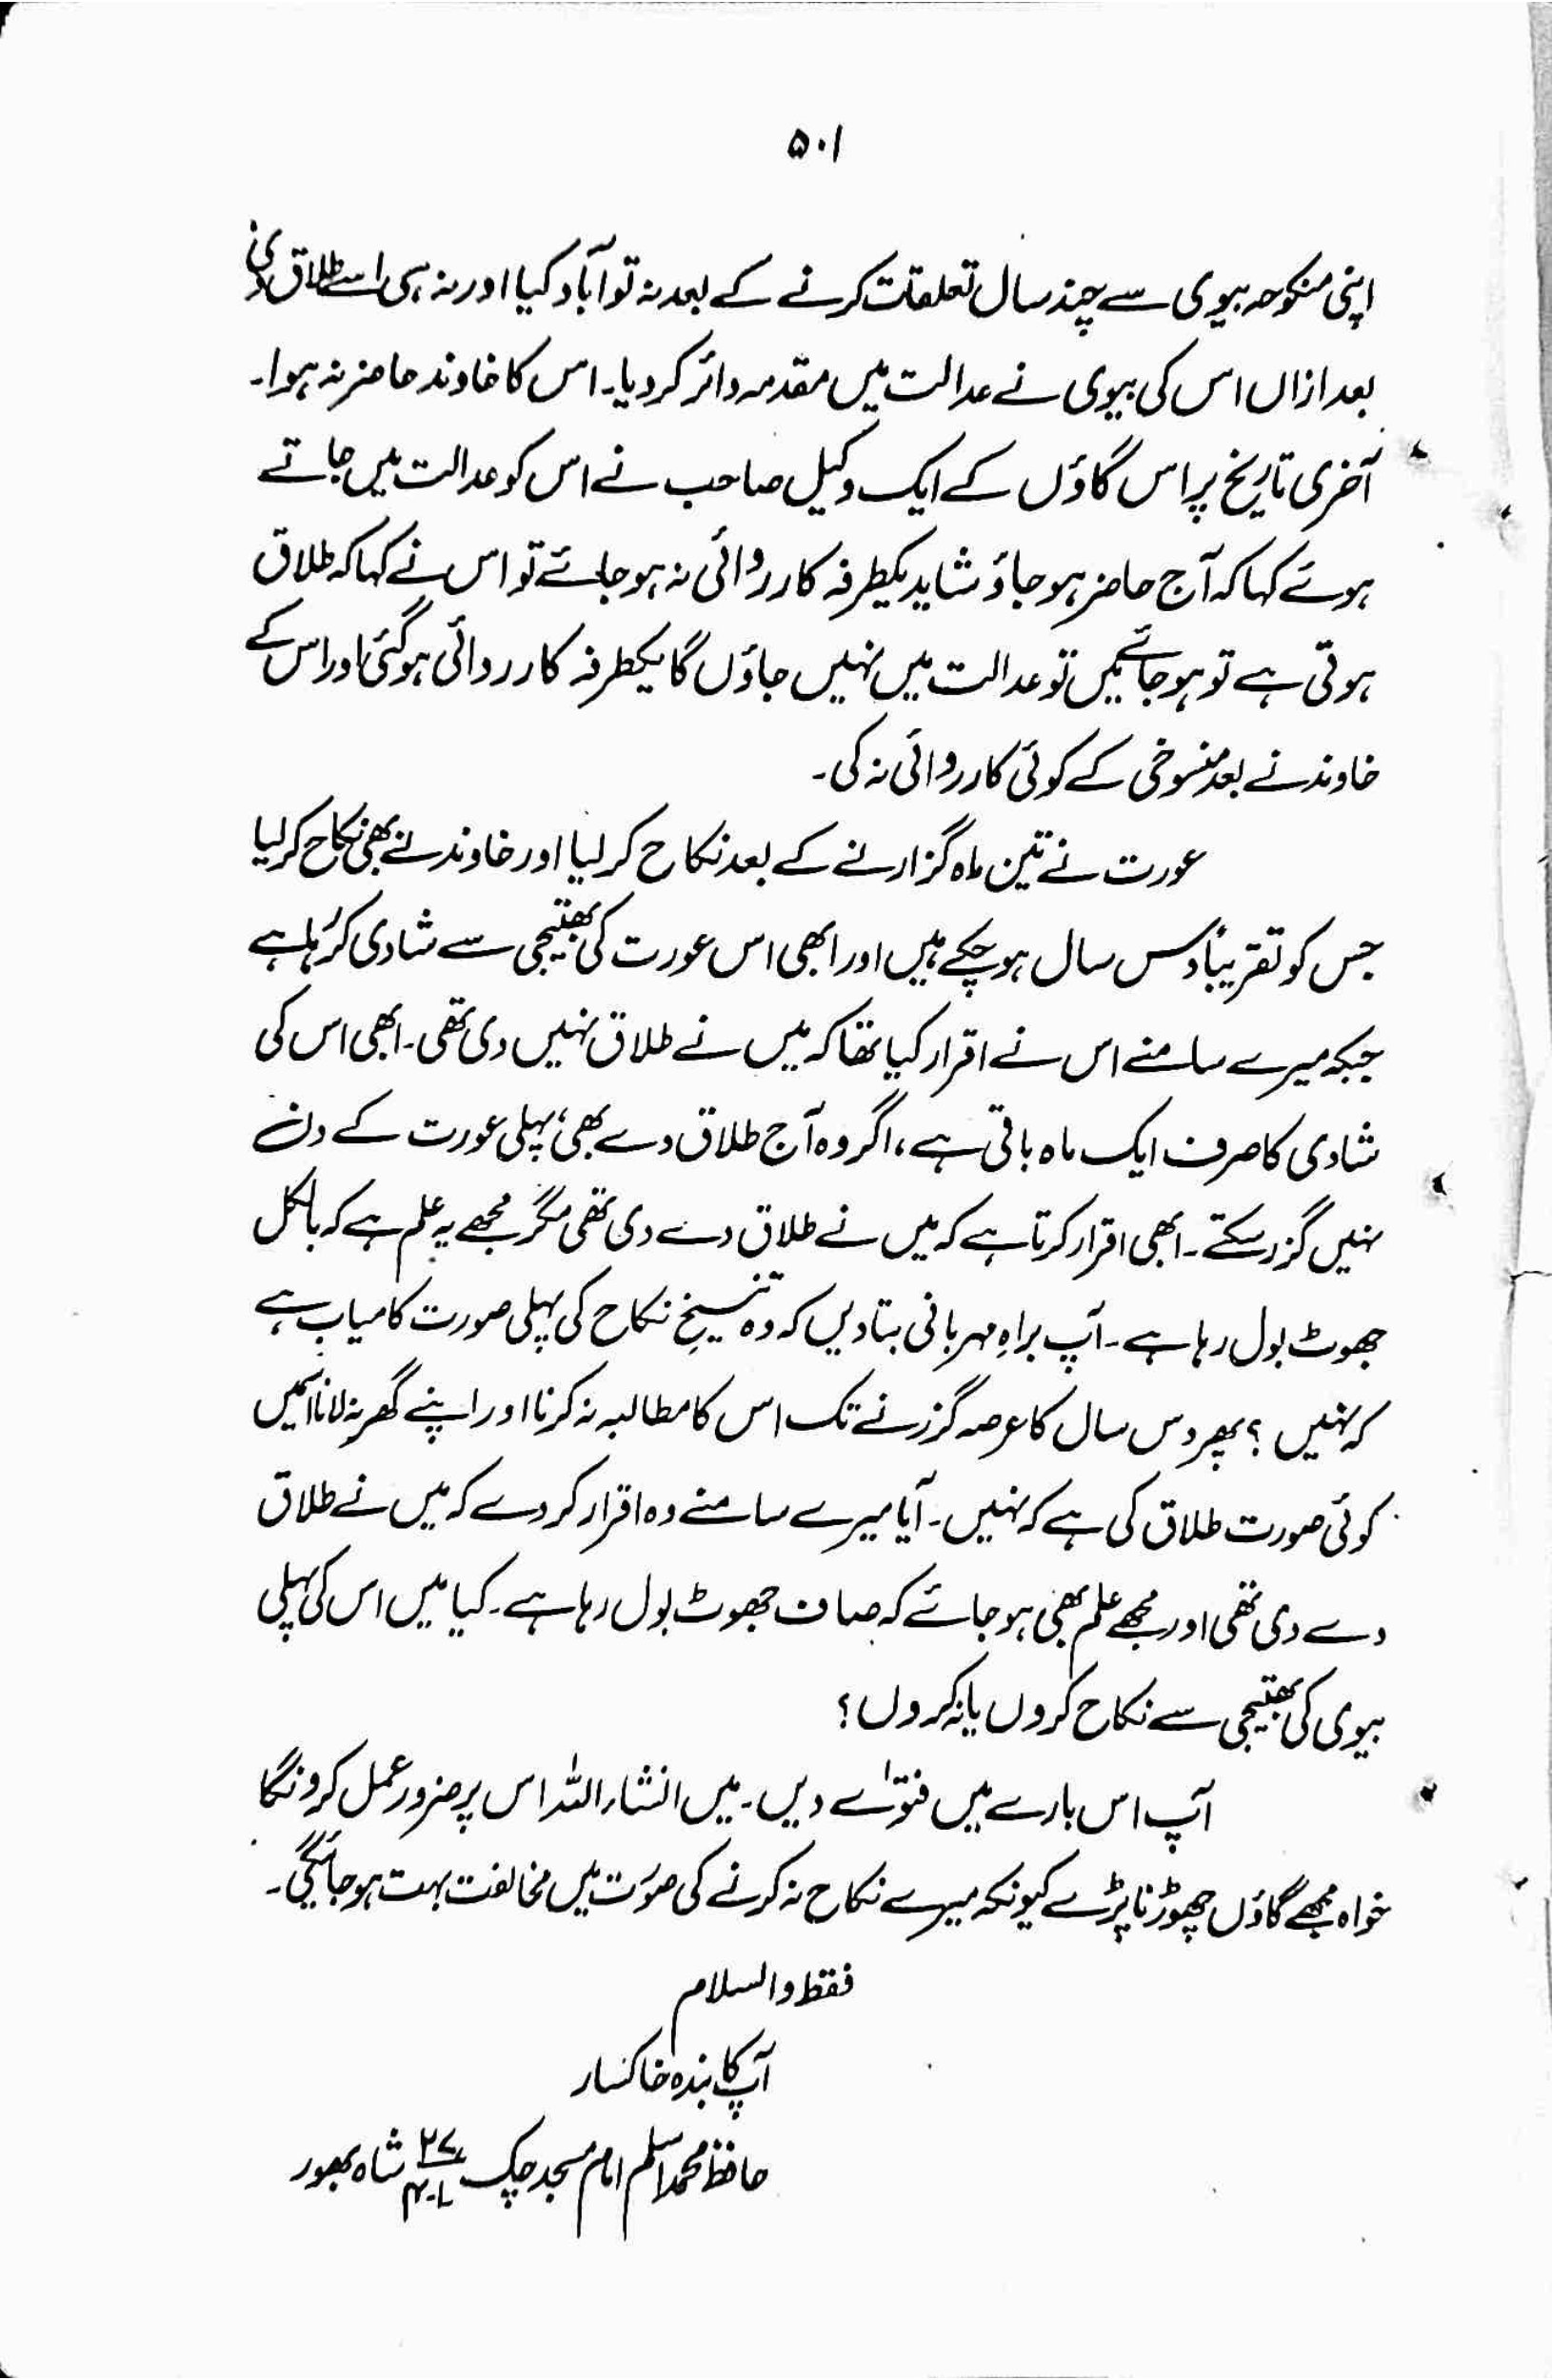 ۵۰۱
اپنی منکوحہ بیوی سے چند سال تعلقات کرنے کے بعد نہ تو آباد کیا اور نہ ہی اسے طلاق دی
بعد ازاں اس کی بیوی نے عدالت میں مقدمہ دائر کر دیا۔ اس کا خاوند حاضر نہ ہوا۔
آخری تاریخ پر اس گاؤں کے ایک وکیل صاحب نے اس کو عدالت میں جاتے
ہوئے کہا کہ آج حاضر ہو جاؤ شاید یکطرفہ کارروائی نہ ہو جائے تو اس نے کہا کہ طلاق
ہوتی ہے تو ہو جائے میں تو عدالت میں نہیں جاؤں گا یکطرفہ کارروائی ہو گئی اور اس کے
خاوند نے بعد منسوخی کے کوئی کارروائی نہ کی۔
عورت نے تین ماہ گزارنے کے بعد نکاح کر لیا اور خاوند نے بھی نکاح کر لیا
جس کو تقریباً دس سال ہو چکے ہیں اور ابھی اس عورت کی بھتیجی سے شادی کر رہا ہے
جبکہ میرے سامنے اس نے اقرار کیا تھا کہ میں نے طلاق نہیں دی تھی۔ ابھی اس کی
شادی کا صرف ایک ماہ باقی ہے، اگر وہ آج طلاق دے بھی، پہلی عورت کے دن
نہیں گزر سکتے۔ ابھی اقرار کرتا ہے کہ میں نے طلاق دے دی تھی مگر مجھے یہ علم ہے کہ بالکل
جھوٹ بول رہا ہے۔ آپ براہِ مہربانی بتا دیں کہ وہ تنسیخِ نکاح کی پہلی صورت کامیاب ہے
کہ نہیں؟ پھر دس سال کا عرصہ گزرنے تک اس کا مطالبہ نہ کرنا اور اپنے گھر نہ لانا اسمیں
کوئی صورت طلاق کی ہے کہ نہیں۔ آیا میرے سامنے وہ اقرار کر دے کہ میں نے طلاق
دے دی تھی اور مجھے علم بھی ہو جائے کہ صاف جھوٹ بول رہا ہے۔ کیا میں اس کی پہلی
بیوی کی بھتیجی سے نکاح کروں یا نہ کروں؟
آپ اس بارے میں فتوٰے دیں۔ میں انشاء اللہ اس پر ضرور عمل کرونگا
خواہ مجھے گاؤں چھوڑنا پڑے کیونکہ میرے نکاح نہ کرنے کی صورت میں مخالفت بہت ہو جائیگی۔
فقط والسلام
آپ کا بندہ خاکسار
حافظ محمد اسلم امام مسجد چک شاہ بھور